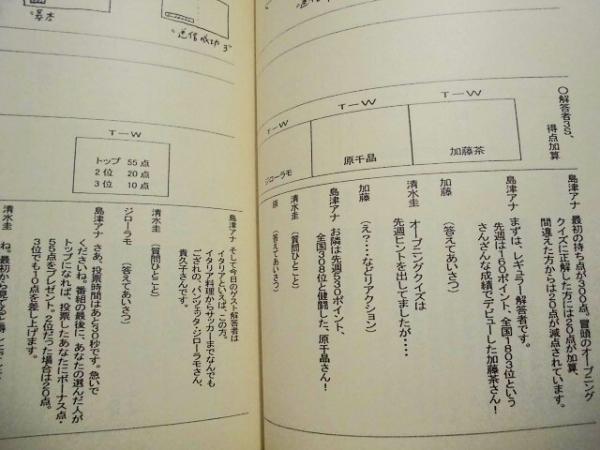 〇解答者3S、
得点加算
T－W
加藤茶
T－W
原千晶
T－W
ジローラモ
島津アナ　最初の持ち点が300点。冒頭のオープニング
クイズに正解した方には20点が加算、
間違えた方からは20点が減点されています。
まずは、レギュラー解答者です。
島津アナ　先週は160ポイント、全国1803位という
さんざんな成績でデビューした加藤茶さん！
加藤　（答えてあいさつ）
清水圭　オープニングクイズは
先週ヒントを出してましたが・・・・
加藤　（え？・・などリアクション）
島津アナ　お隣は先週530ポイント、
全国308位と健闘した、原千晶さん！
清水圭　（質問ひとこと）
原　（答えてあいさつ）
"基本"
T－W
トップ　55点
2位　20点
3位　10点
島津アナ　そして今日のゲスト解答者は
イタリアといえば、この方。
イタリア料理からサッカーまでなんでも
ござれの、パンツェッタ・ジローラモさん、
貴久子さんです。
清水圭　（質問ひとこと）
ジローラモ　（答えてあいさつ）
島津アナ　さあ、投票時間はあと30秒です。急いで
くださいね。番組の最後に、あなたの選んだ人が
トップになれば、投票したあなたにボーナス点・
55点をプレゼント。2位だった場合は20点。
3位でも10点を差し上げます。
清水圭　ね、最初から見てると得